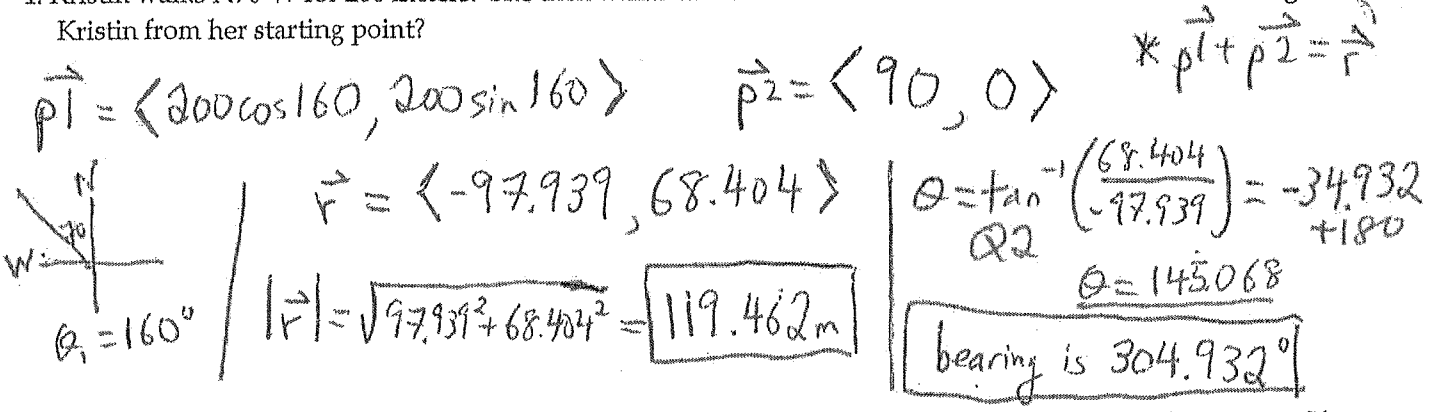 Kristin from her starting point?
* p⃗1 + p⃗2 = r⃗
p⃗1 = <200cos160, 200 sin 160>
p⃗2 = <90, 0>
N
70
W
θ₁ = 160°
r⃗ = <-97.939, 68.404>
|r⃗| = √97.939² + 68.404² = 119.462m
θ = tan⁻¹(68.404/-97.939) = -34.932
Q2 +180
θ = 145.068
bearing is 304.932°